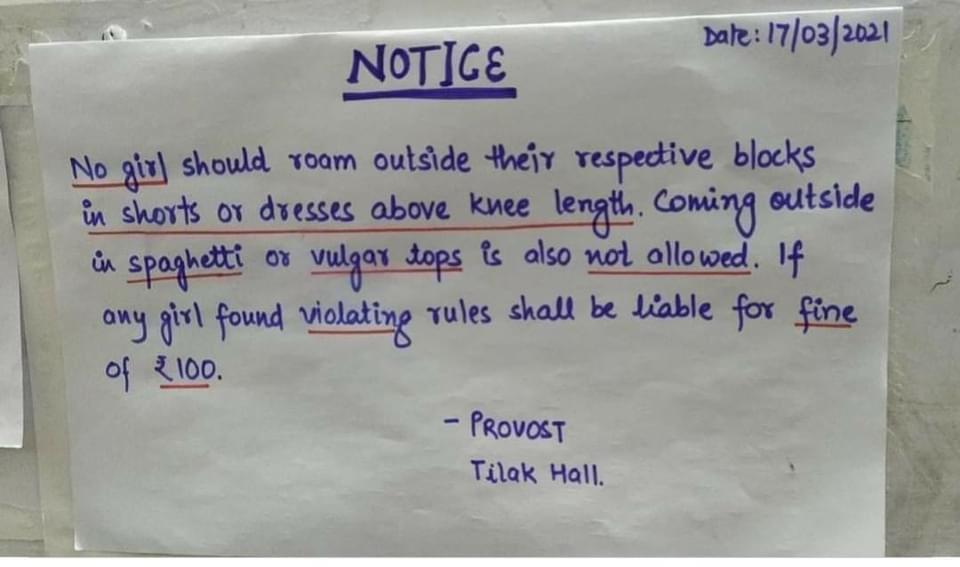 Date: 17/03/2021
NOTICE
No girl should roam outside their respective blocks
in shorts or dresses above knee length. Coming outside
in spaghetti or vulgar tops is also not allowed. If
any girl found violating rules shall be liable for fine
of ₹100.
- PROVOST
Tilak Hall.